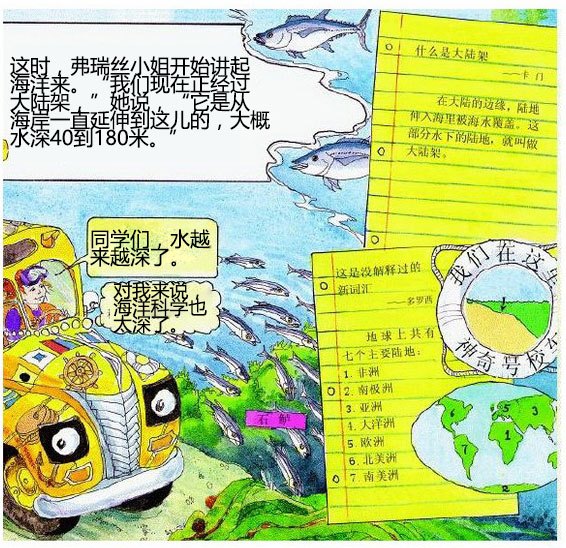 这时，弗瑞丝小姐开始讲起
海洋来。“我们现在正经过
大陆架，”她说，“它是从
海岸一直延伸到这儿的，大概
水深40到180米。”
什么是大陆架
——卡门
在大陆的边缘，陆地
伸入海里被海水覆盖。这
部分水下的陆地，就叫做
大陆架。
同学们，水越
来越深了。
对我来说，
海洋科学也
太深了。
石鲈
这是没解释过的
新词汇
——多罗西
地球上共有
七个主要陆地：
1. 非洲
2. 南极洲
3. 亚洲
4. 大洋洲
5. 欧洲
6. 北美洲
7. 南美洲
我们在这里
神奇号校车
6
5
3
1
7
2